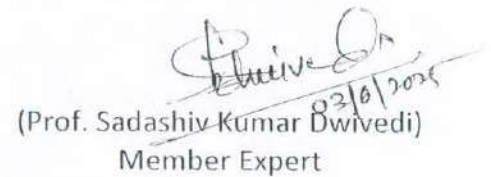 Dwivedi
02/6/2025
(Prof. Sadashiv Kumar Dwivedi)
Member Expert